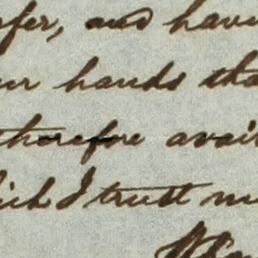 fer, and havi
ur hands tha
therefore avai
ich I trust m